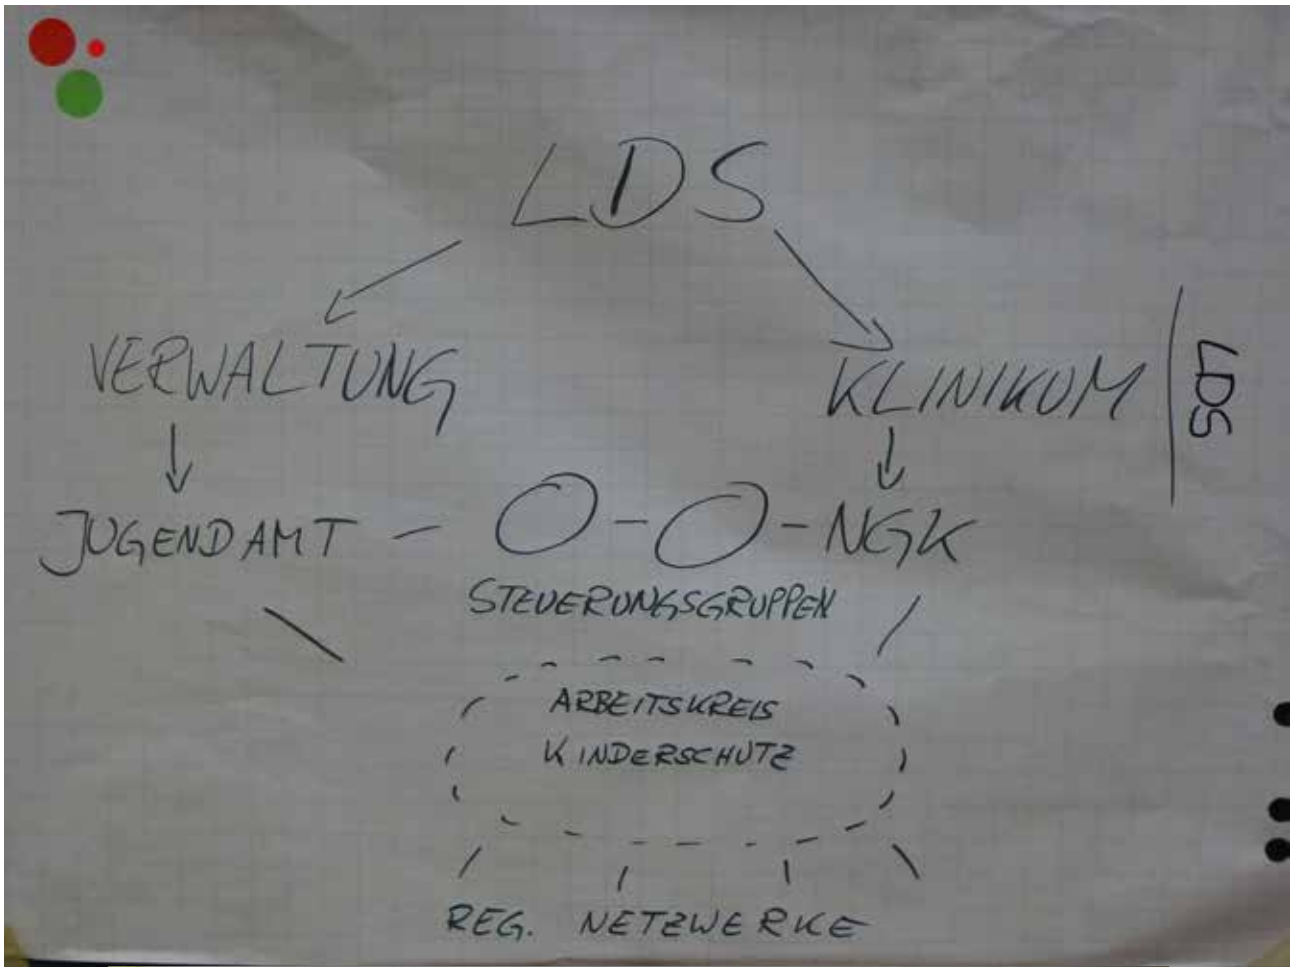 LDS
VERWALTUNG
KLINIKUM
LDS
JUGENDAMT
NGK
STEUERUNGSGRUPPEN
ARBEITSKREIS
KINDERSCHUTZ
REG. NETZWERKE